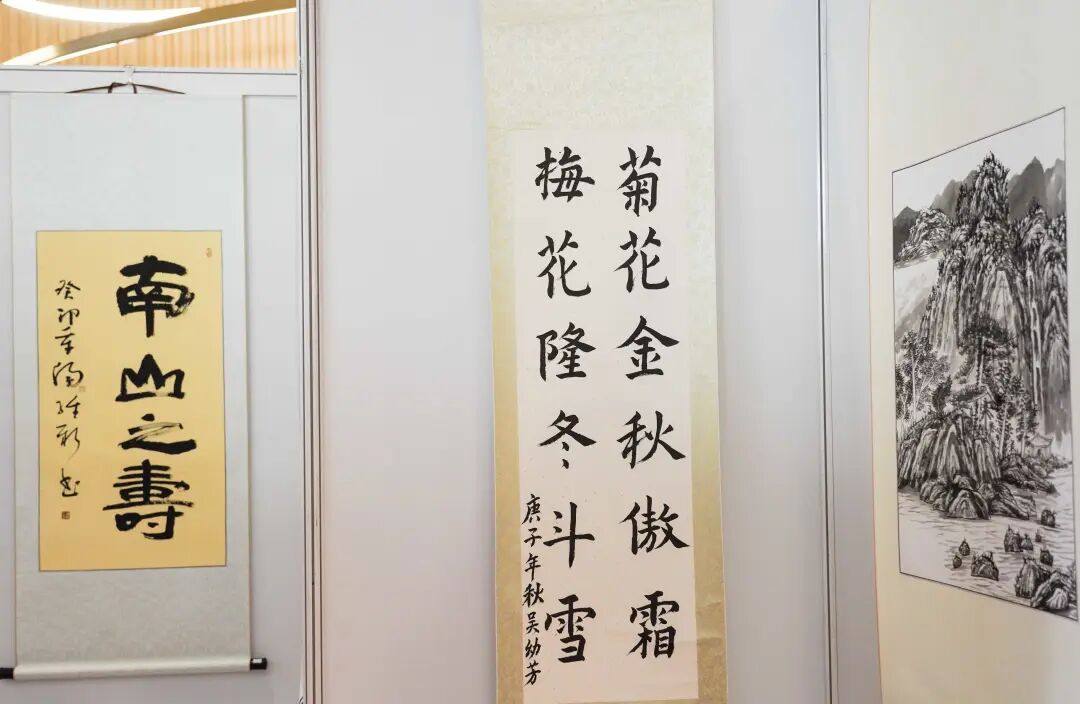 南山之壽
癸卯年
菊花金秋傲霜
梅花隆冬斗雪
庚子年秋吴幼芳